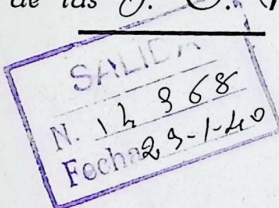 de las J.
SALIDA
N. 14968
Fecha 29-1-40